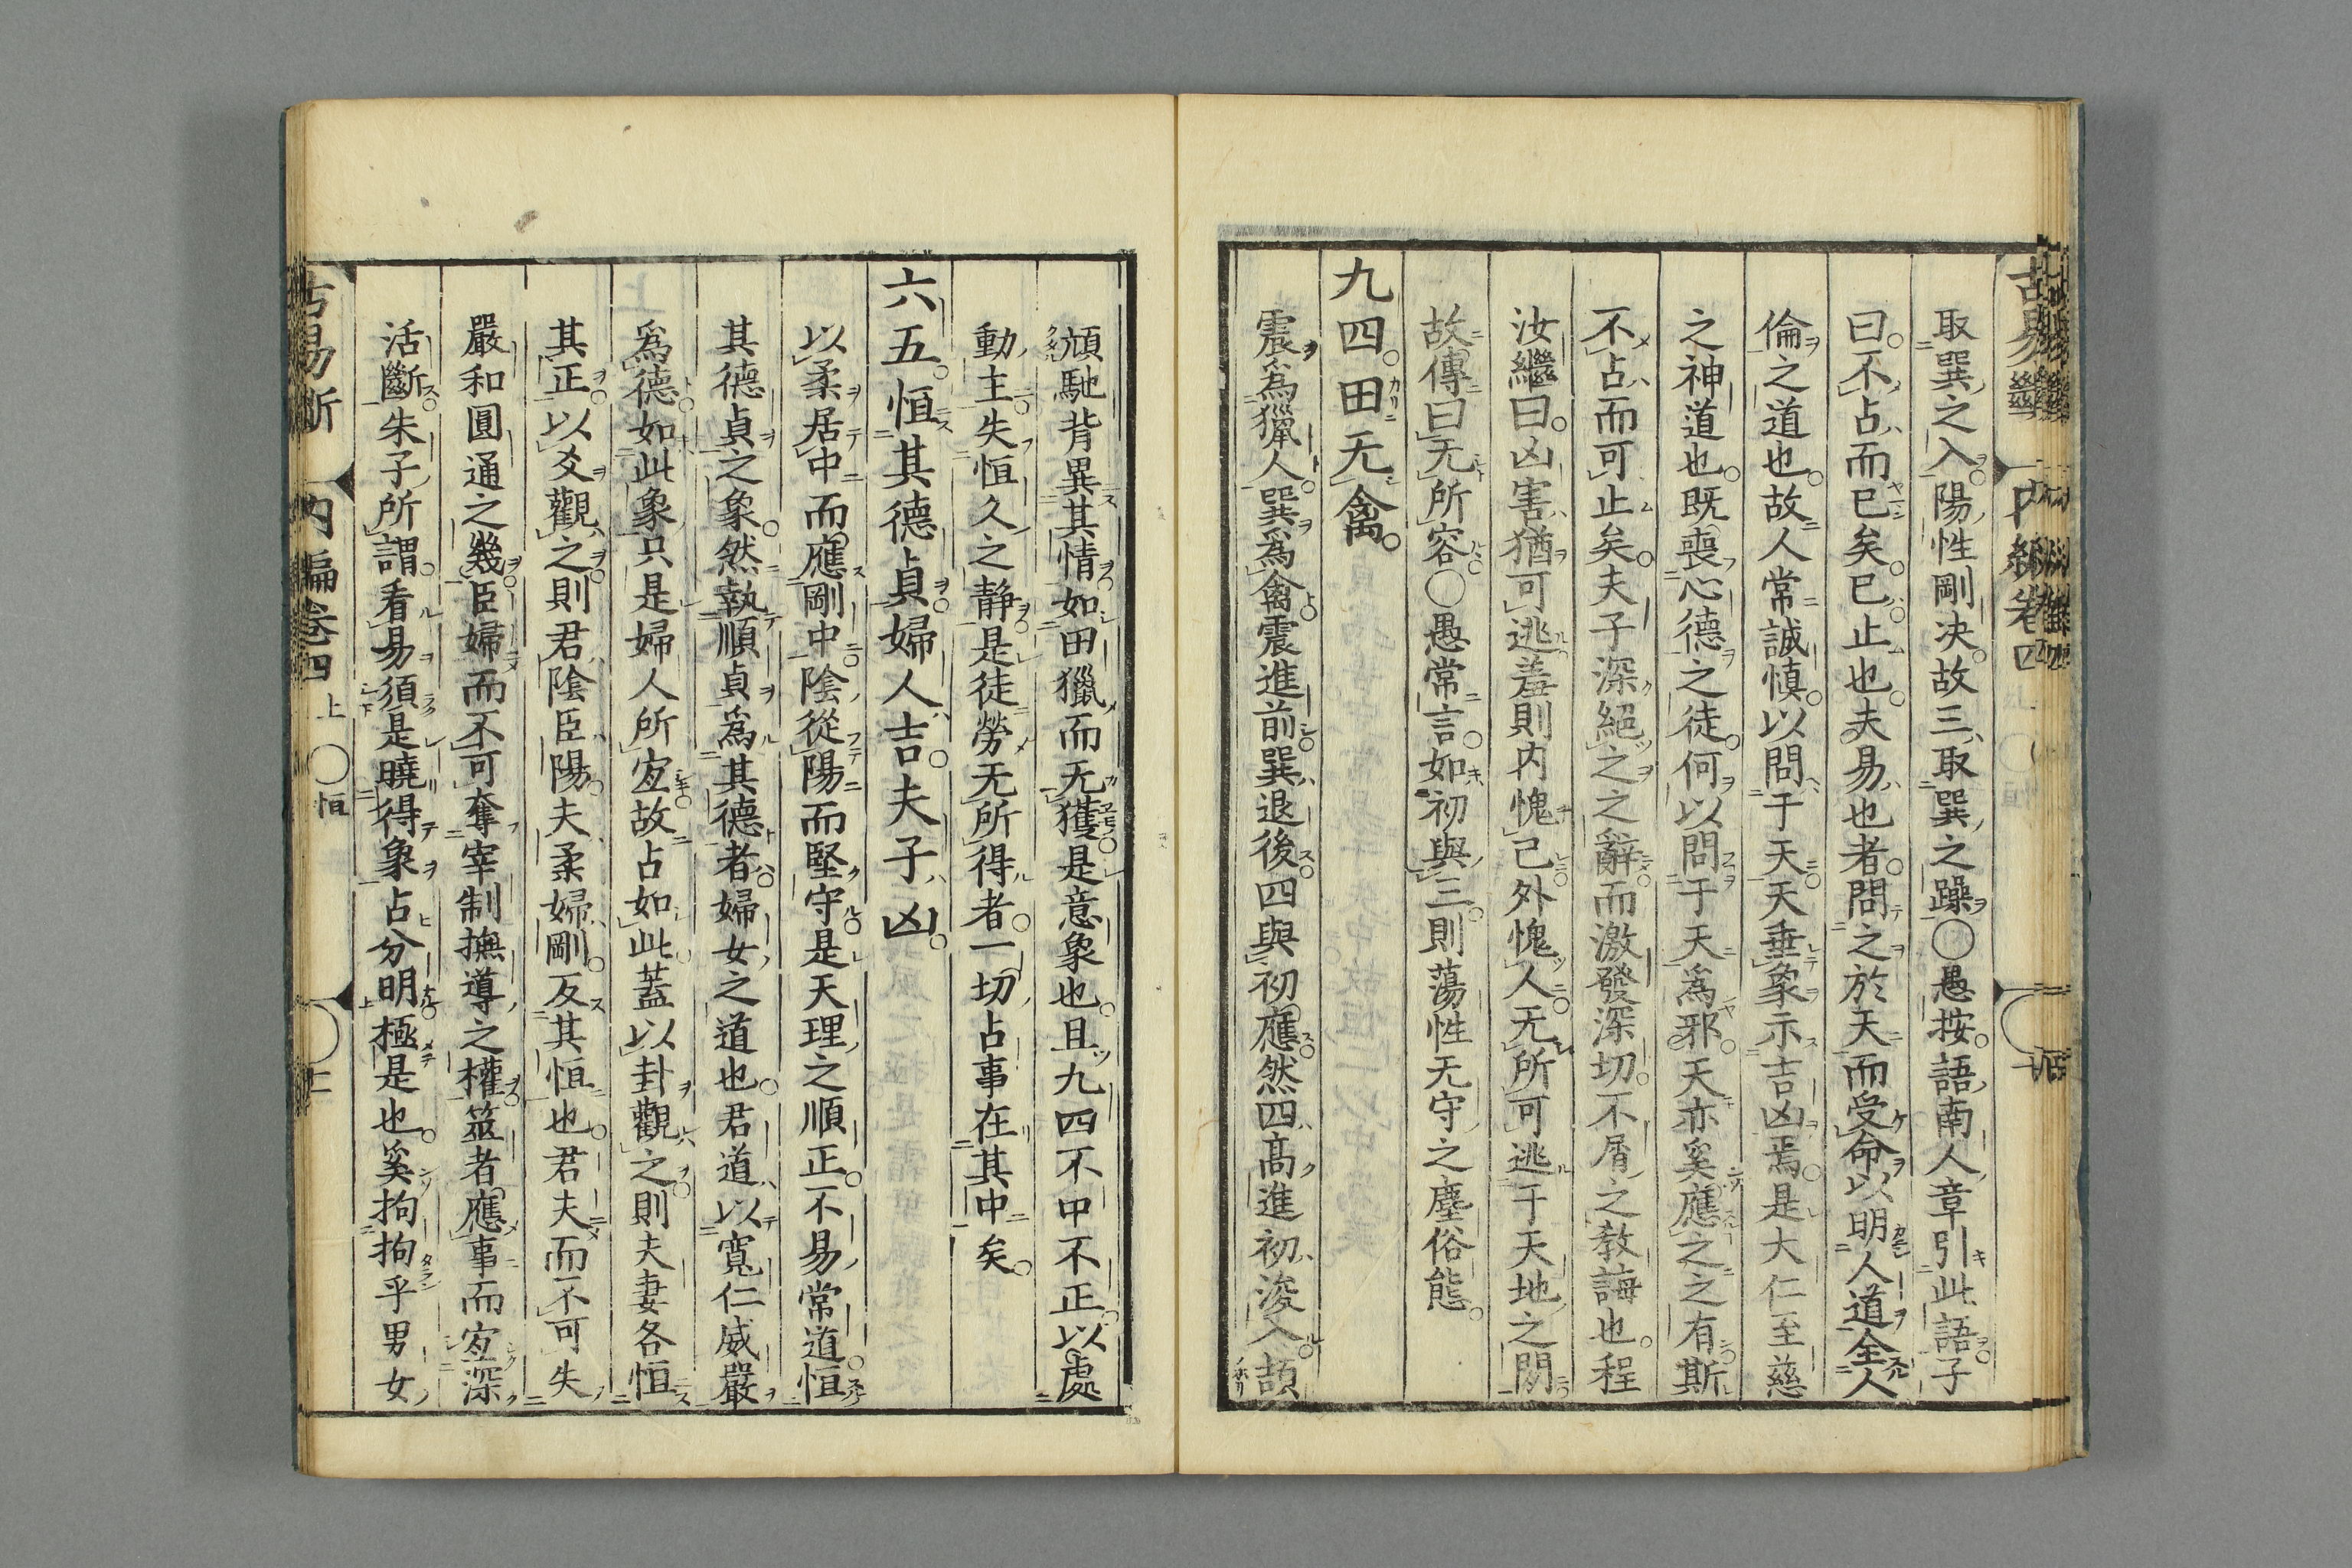 取巽之入陽性剛決故三取巽之躁〇愚按語南人章引此語子
曰不占而已矣已止也夫易也者問之於天而受命以明人道全人
倫之道也故人常誠愼以問于天天垂象示吉凶焉是大仁至慈
之神道也既喪心德之徒何以問于天爲邪天亦奚應之之有斯
不占而可止矣夫子深絕之之辭而激發深切不屑之教誨也程
汝繼曰凶害猶可逃羞則内愧己外愧人无所可逃于天地之間
故傳曰无所容〇愚常言如初與三則蕩性无守之塵俗態
九四田无禽
震爲獵人巽爲禽震進前巽退後四與初應然四高進初浚入頡
頏馳背異其情如田獵而无獲是意象也且九四不中不正以處
動主失恒久之靜是徒勞无所得者一切占事在其中矣
六五恒其德貞婦人吉夫子凶
以柔居中而應剛中陰從陽而堅守是天理之順正不易常道恒
其德貞之象然執順貞爲其德者婦女之道也君道以寬仁威嚴
爲德如此象只是婦人所宜故占如此蓋以卦觀之則夫妻各恒
其正以爻觀之則君陰臣陽夫柔婦剛反其恒也君夫而不可失
嚴和圓通之幾臣婦而不可奪宰制撫導之權筮者應事而宜深
活斷朱子所謂看易須是曉得象占分明極是也奚拘拘乎男女
古易斷 内編卷四 上 〇恒